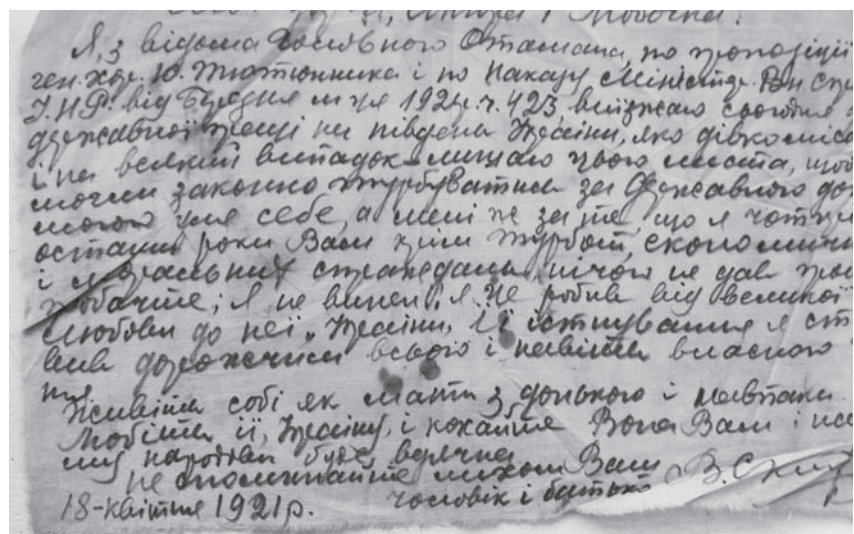 Я, з відома Головного Отамана, по пропозіціі
ген. хор. Ю. Тютюнника і по Наказу Міністр. Вн спр
У.Н.Р. від Березня м ця 1921 р. ч. 423, виїзжаю сьогодня
державної праці на південь України, яко
і на всякий випадок лишаю цього листа, щоб
могли законно турбуватись за Державного
могою для себе, а мені же за те, що я чотир
останні роки Вам крім турбот, економичн
і моральних страждань, нічого не дав
пробачте; я не винен. я це робив від великої
любови до неї, України. Її істнування я ст
вив дорожчим всього і навіть власного

Живіть собі як мати з донькою і навпаки.
Любіть її, Україну, і кохайте Вона Вам і на
му народови буде вдячна.
не споминайте лихом Вам
18-квітня 1921 р. чоловік і батько В. Ск